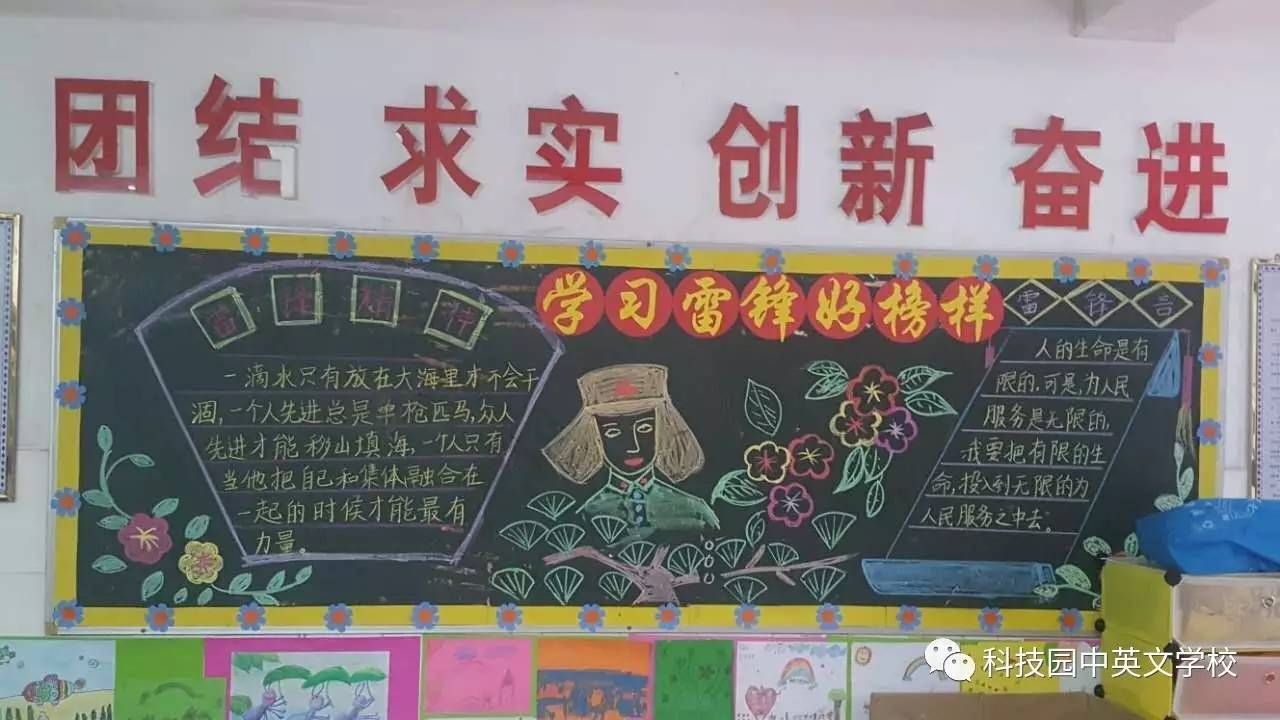 团结 求实 创新 奋进
雷锋精神
一滴水只有放在大海里才不会干
涸,一个人先进总是单枪匹马,众人
先进才能移山填海,一个人只有
当他把自己和集体融合在
一起的时候才能最有
力量。
学习雷锋好榜样
雷锋言
人的生命是有
限的,可是,为人民
服务是无限的,
我要把有限的生
命,投入到无限的为
人民服务之中去。
科技园中英文学校